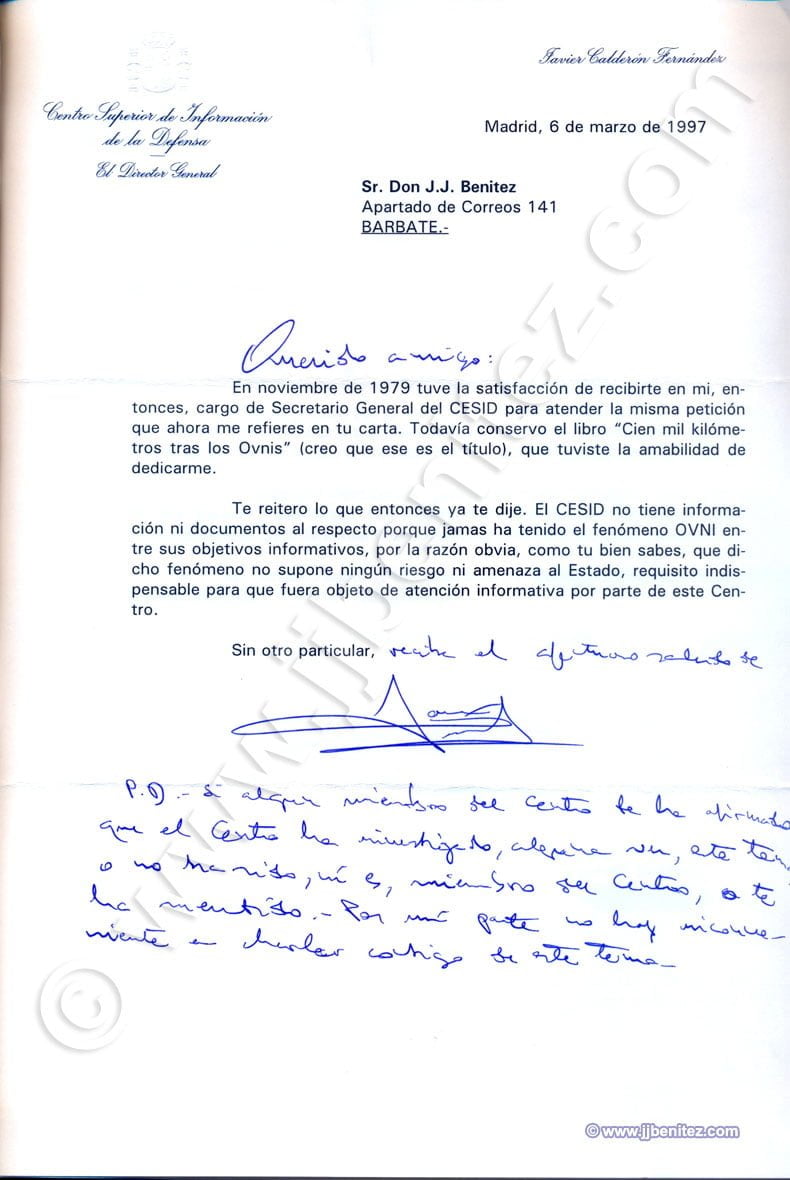 Javier Calderón Fernández
Centro Superior de Información
de la Defensa
El Director General
Madrid, 6 de marzo de 1997
Sr. Don J.J. Benitez
Apartado de Correos 141
BARBATE.-
Querido amigo:
En noviembre de 1979 tuve la satisfacción de recibirte en mi, en-
tonces, cargo de Secretario General del CESID para atender la misma petición
que ahora me refieres en tu carta. Todavía conservo el libro “Cien mil kilóme-
tros tras los Ovnis” (creo que ese es el título), que tuviste la amabilidad de
dedicarme.
Te reitero lo que entonces ya te dije. El CESID no tiene informa-
ción ni documentos al respecto porque jamas ha tenido el fenómeno OVNI en-
tre sus objetivos informativos, por la razón obvia, como tu bien sabes, que di-
cho fenómeno no supone ningún riesgo ni amenaza al Estado, requisito indis-
pensable para que fuera objeto de atención informativa por parte de este Cen-
tro.
Sin otro particular, recibe el afectuoso saludo de
P.D.- Si algun miembro del Centro te ha afirmado
que el Centro ha investigado, alguna vez, este tema
o no ha sido, ni es, miembro del Centro, o te
ha mentido.- Por mi parte no hay inconve-
niente en charlar contigo de este tema-
www.jjbenitez.com
©
© www.jjbenitez.com